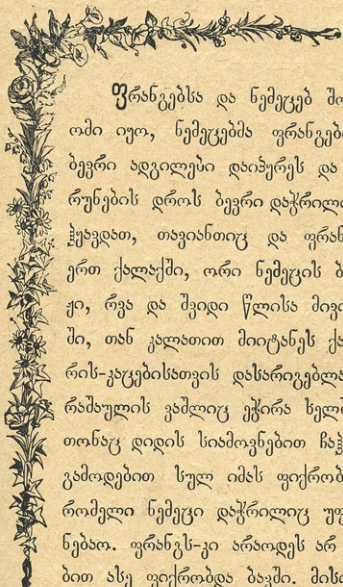 ფრანგებსა და ნემეცებ შო
ომი იყო, ნემეცებმა ფრანგები
ბევრი ადგილები დაიპურეს და
რუნების დროს ბევრი დაჭრილი
ჰყავდათ, თავიანთიც და ფრან
ერთ ქალაქში, ორი ნემეცის ბ
ჟი, რვა და შვიდი წლისა მივი
ში, თან კალათით მიიტანეს ქა
რის-კაცებისათვის დასარიგებლა
რაშაულის ვაშლიც ეჭირა ხელშ
თონაც დიდის სიამოვნებით ჩაჰ
გამოდებით სულ იმას ფიქრობ
რომელი ნემეცი დაჭრილიც უფ
ნებაო. ფრანგს-კი არაოდეს არ
ბით ასე ფიქრობდა ბავში. მისი